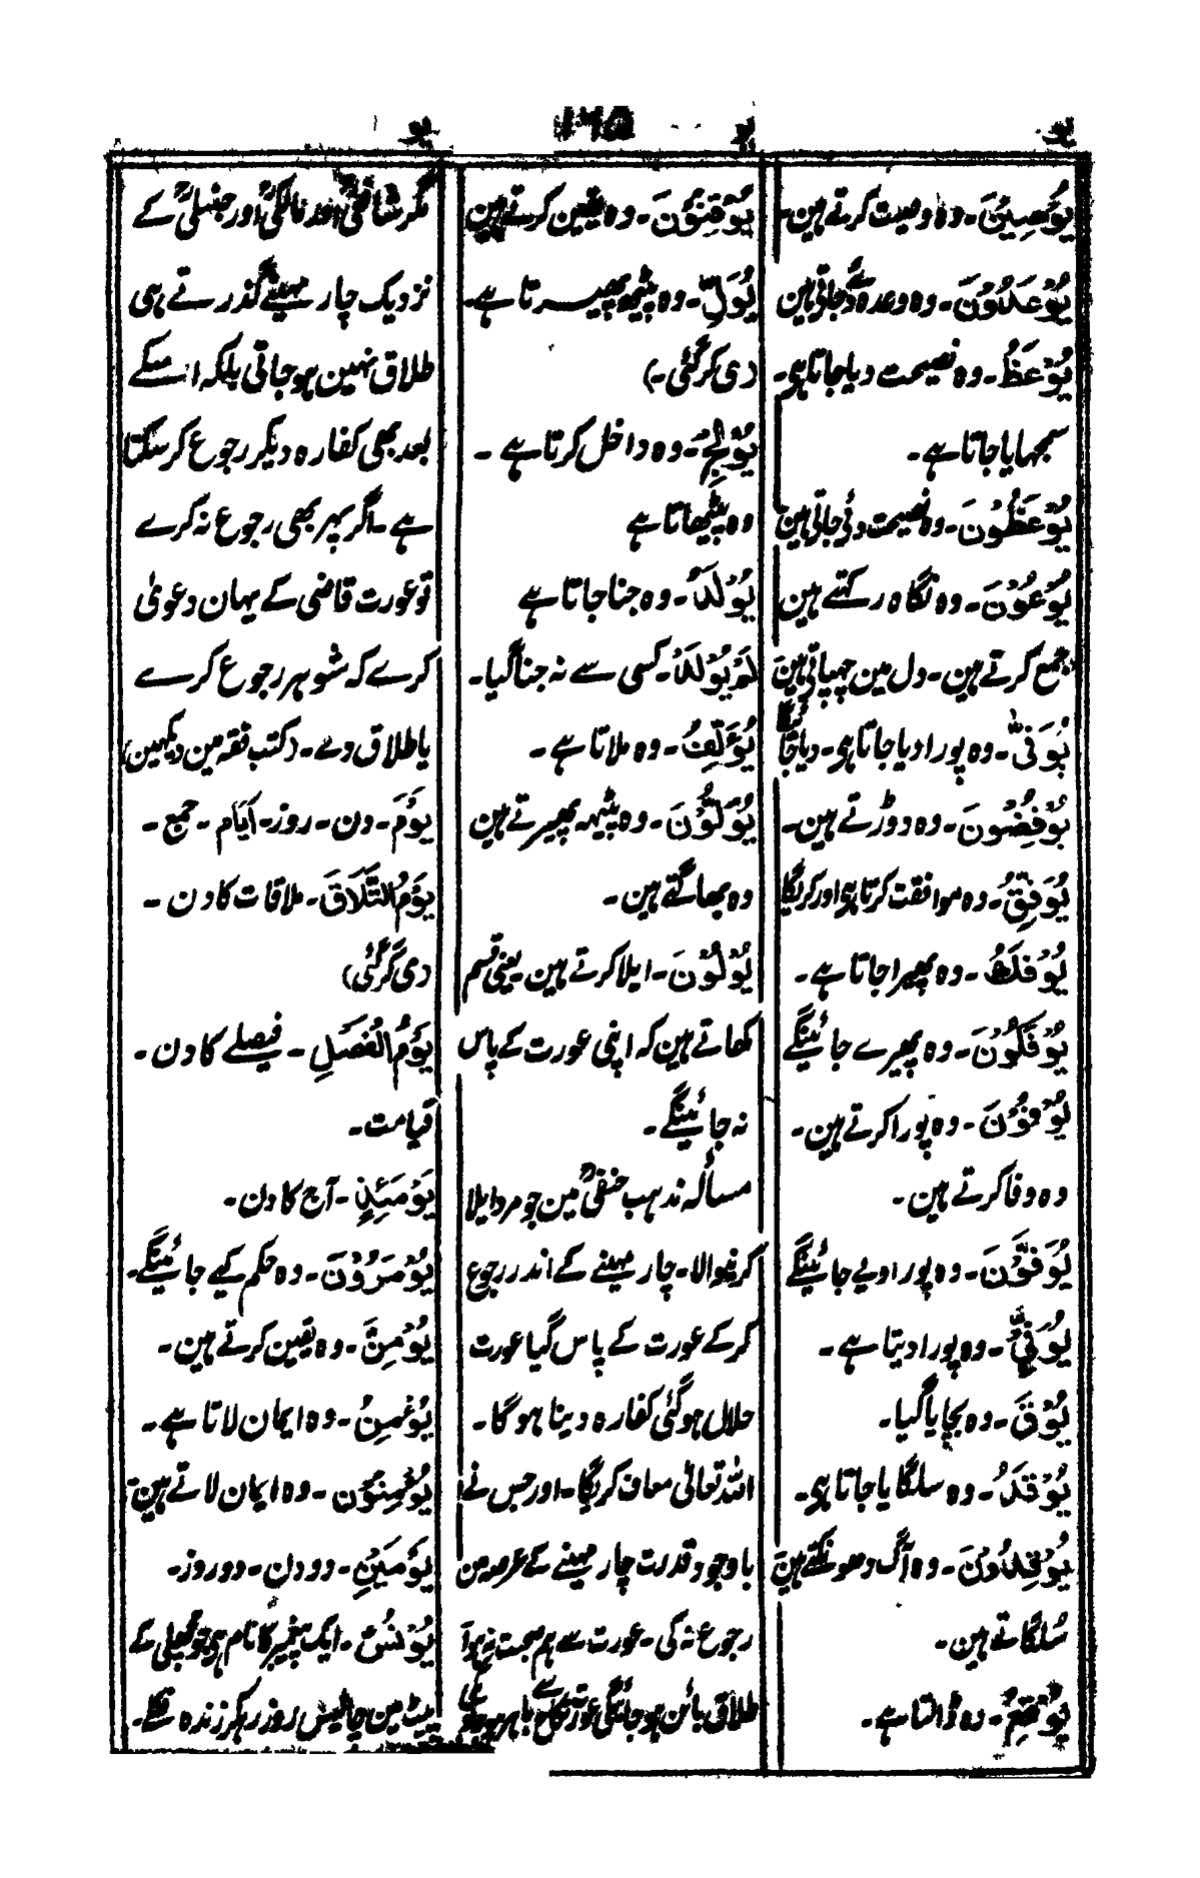 یو
۱۶۵
یو
یو
یُوْصِیْنَ۔ وہ وصیت کرتے ہین۔
یُوْعَدُوْنَ۔ وہ وعدہ دئے جاتی ہین
یُوْعَظُ۔ وہ نصیحت دیا جاتا ہی۔
سمجہایا جاتا ہے۔
یُوْعَظُوْنَ۔ وہ نصیحت دئی جاتی ہین
یُوْعُوْنَ۔ وہ نگاہ رکہتے ہین
جمع کرتے ہین۔ دل مین چہپاتی ہین
یُوَفّٰی۔ وہ پورا دیا جاتا ہی۔ دیا جائیگا
یُوْفِضُوْنَ۔ وہ دوڑتے ہین۔
یُوَفِّقُ۔ وہ موافقت کرتا ہی اور کریگا
یُوْفَكُ۔ وہ پھیرا جاتا ہے۔
یُوْفَكُوْنَ۔ وہ پھیرے جائینگے
یُوْفُوْنَ۔ وہ پورا کرتے ہین۔
وہ وفا کرتے ہین۔
یُوَفَّوْنَ۔ وہ پورا دیے جائینگے
یُوَفِّیْ۔ وہ پورا دیتا ہے۔
یُوْقَ۔ وہ بچایا گیا۔
یُوْقَدُ۔ وہ سلگایا جاتا ہی۔
یُوْقِدُوْنَ۔ وہ آگ دھونکتے ہین
سُلگاتے ہین۔
یُوْقِعُ۔ وہ ڈالتا ہے۔
یُوْقِنُوْنَ۔ وہ یقین کرتے ہین
یُوَلِّ۔ وہ پیٹھ پھیرتا ہے۔
(ی گر گئی۔)
یُوْلِجُ۔ وہ داخل کرتا ہے۔
وہ بٹیھاتا ہے
یُوْلَدُ۔ وہ جنا جاتا ہے
لَمْ یُوْلَدْ۔ کسی سے نہ جنا گیا۔
یُؤَلِّفُ۔ وہ ملاتا ہے۔
یُوَلُّوْنَ۔ وہ پیٹہہ پھیرتے ہین
وہ بھاگتے ہین۔
یُوْلُوْنَ۔ ایلا کرتے ہین۔ یعنی قسم
کھاتے ہین کہ اپنی عورت کے پاس
نہ جائینگے۔
مسألہ مذہب حنفیؒ مین جو مرد ایلا
کرنیوالا۔ چار مہینے کے اندر رجوع
کر کے عورت کے پاس گیا عورت
حلال ہو گئی کفارہ دینا ہو گا۔
اللہ تعالی معاف کریگا۔ اور جس نے
باوجود قدرت چار مہینے کے عرصہ من
رجوع نہ کی۔ عورت سے ہم صحبت نہوا
طلاق بائن ہو جائیگی عورت نکاح سے باہر
مگر شافعیؒ اور مالکیؒ اور حنبلیؒ کے
نزدیک چار مہینے گذرتے ہی
طلاق نہین ہو جاتی بلکہ اسکے
بعد بھی کفارہ دیکر رجوع کر سکتا
ہے۔ اگر پہر بھی رجوع نہ کرے
تو عورت قاضی کے یہان دعویٰ
کرے کہ شوہر رجوع کرے
یا طلاق دے۔ (کتب فقہ مین دیکہین)
یَوْمَ۔ دن۔ روز۔ اَیَّام۔ جمع۔
یَوْمُ التَّلَاقَ۔ ملاقات کا دن۔
(ی گر گئی)
یَوْمُ الْفَصْلِ۔ فیصلے کا دن۔
قیامت۔
یَوْمَئِذٍ۔ آج کا دن۔
یُوْمَرُوْنَ۔ وہ حکم کیے جائینگے۔
یُوْمِنَّ۔ وہ یقین کرتے ہین۔
یُؤْمِنُ۔ وہ ایمان لاتا ہے۔
یُؤْمِنُوْن۔ وہ ایمان لاتے ہین
یَوْمَیْنِ۔ دو دن۔ دو روز۔
یُوْنُسُ۔ ایک پیغمبر کا نام ہی جو مچھلی کے
پیٹ مین چالیس روز رہکر زندہ نکلے۔